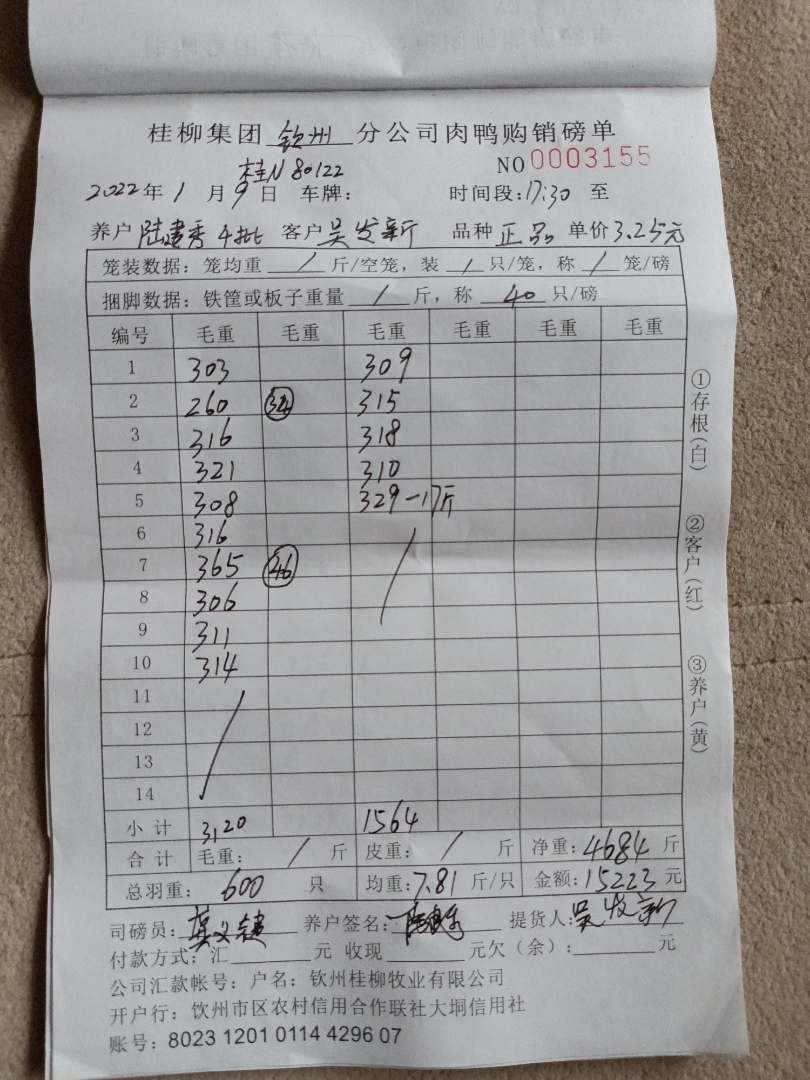 桂柳集团 钦州 分公司肉鸭购销磅单
桂N 80122 NO 0003155
2022年 1 月 9 日 车牌： 时间段：17:30 至
养户 陆建秀 4批 客户 吴发新 品种 正品 单价 3.25元
笼装数据：笼均重 / 斤/空笼，装 / 只/笼，称 / 笼/磅
捆脚数据：铁筐或板子重量 / 斤，称 40 只/磅
编号 毛重 毛重 毛重 毛重 毛重 毛重
1 303 309
2 260 34 315
3 316 318
4 321 310
5 308 329-17斤
6 316 /
7 365 46
8 306
9 311
10 314
11 /
12
13
14
小计 3120 1564
合计 毛重： / 斤 皮重： / 斤 净重：4684 斤
总羽重： 600 只 均重：7.81 斤/只 金额：15223 元
司磅员： 养户签名： 提货人：吴发新
付款方式：汇 元 收现 元欠（余）： 元
公司汇款帐号：户名：钦州桂柳牧业有限公司
开户行：饮州市区农村信用合作联社大垌信用社
账号：8023 1201 0114 4296 07
①存根（白）
②客户（红）
③养户（黄）